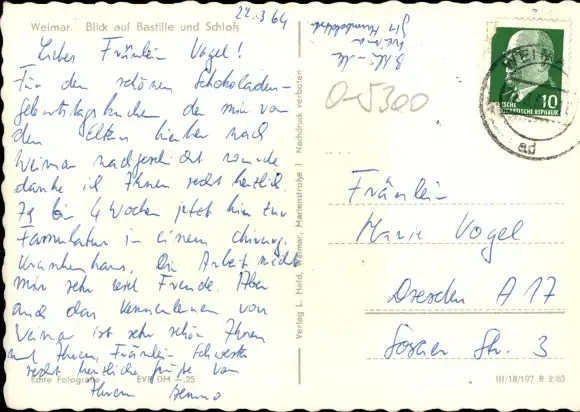 22.3.64
Weimar. Blick auf Bastille und Schloß
Liebes Fräulein Vogel!
Für den schönen Schokoladen-
geburtstagskuchen der mir von
den Eltern hierher nach
Weimar nachgeschickt wurde
danke ich Ihnen recht herzlich.
Ich bin 4 Wochen jetzt hier zur
Famulatur in einem chirurg.
Krankenhaus. Die Arbeit macht
mir sehr viel Freude. Aber
auch das Kennenlernen von
Weimar ist sehr schön. Ihnen
und Ihrem Fräulein Schwester
recht herzliche Grüße von
Ihrem Benno
Echte Fotografie EVP DM -.25
Verlag L. Held, Weimar, Marienstraße 1 Nachdruck verboten
Weimar
0-5300
WEIM
DEUTSCHE
DEMOKRATISCHE REPUBLIK
10
ad
Fräulein
Marie Vogel
Dresden A 17
Str. 3
III/18/197 R 2/63